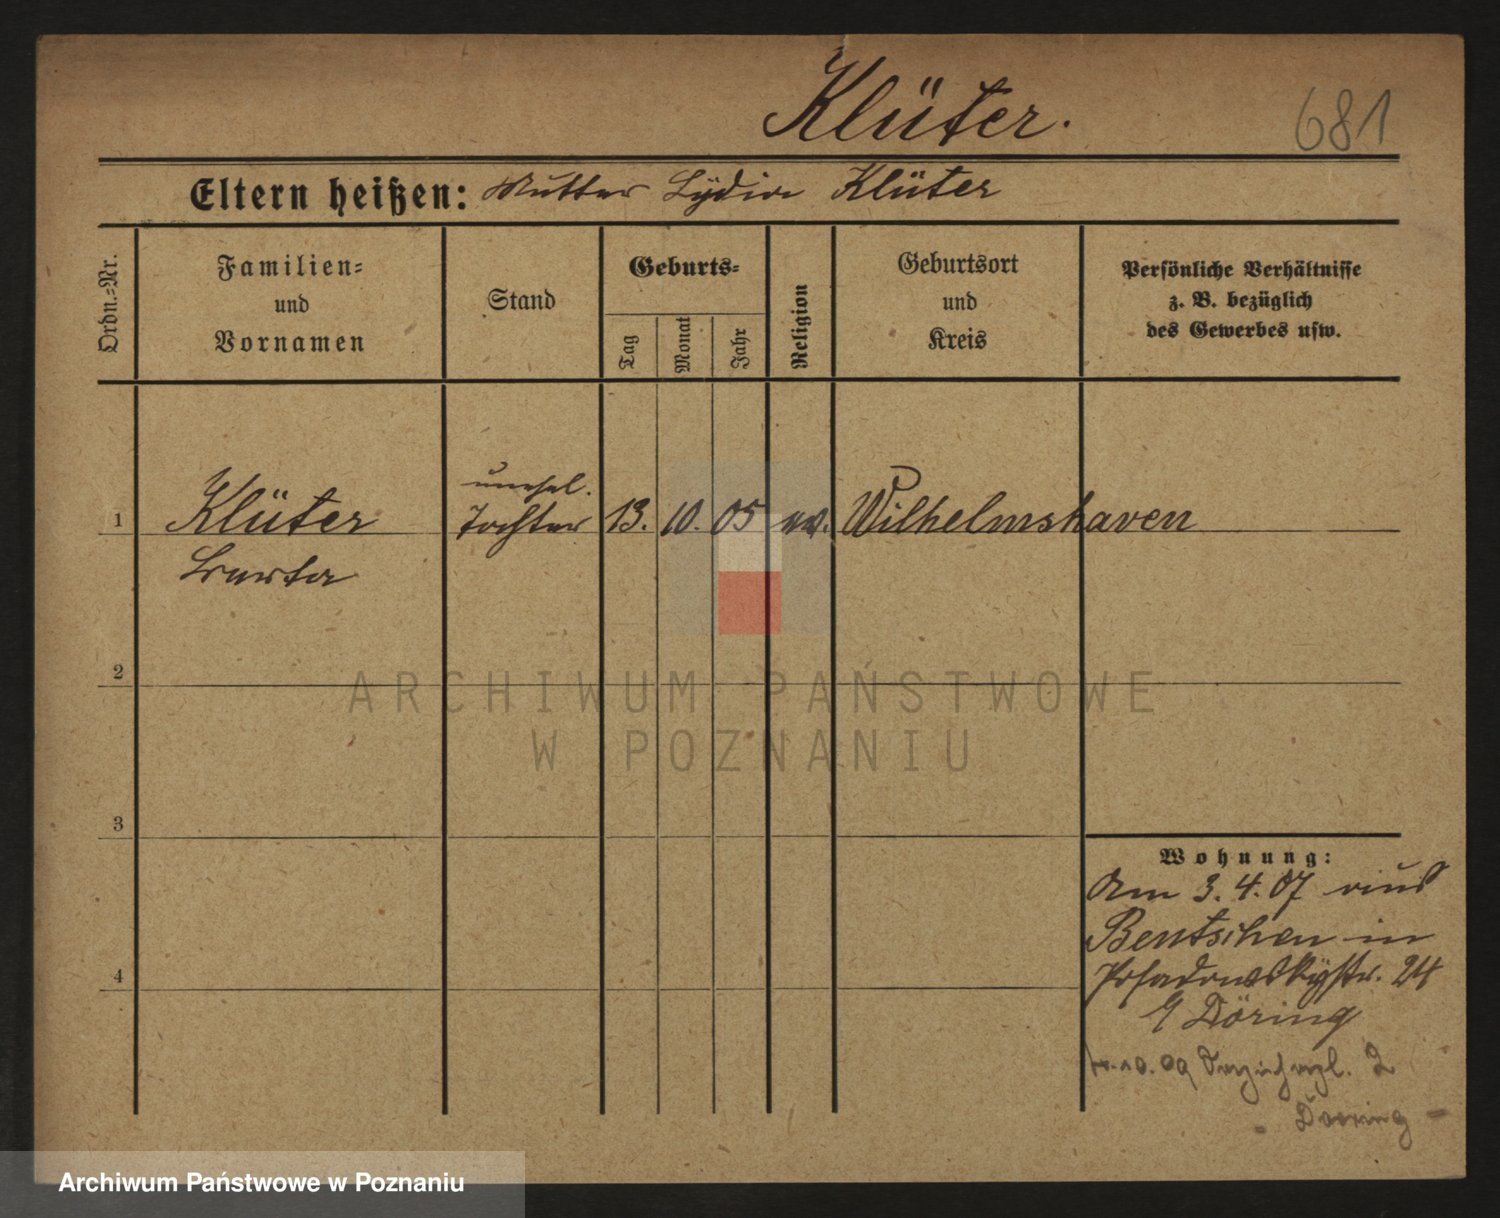 Klüter.
681
Eltern heißen: Mutter Lydia Klüter
Ordn.-Nr.
Familien-
und
Vornamen
Stand
Geburts-
Tag
Monat
Jahr
Religion
Geburtsort
und
Kreis
Persönliche Verhältnisse
z. B. bezüglich
des Gewerbes usw.
unehel.
1 Klüter Tochter 13. 10. 05 ev. Wilhelmshaven
2
3
4
Wohnung:
Am 3.4.07 aus
Bentschen in
Posadowskystr. 24
Döring
10.09 2
Döring
ARCHIWUM PAŃSTWOWE
W POZNANIU
Archiwum Państwowe w Poznaniu